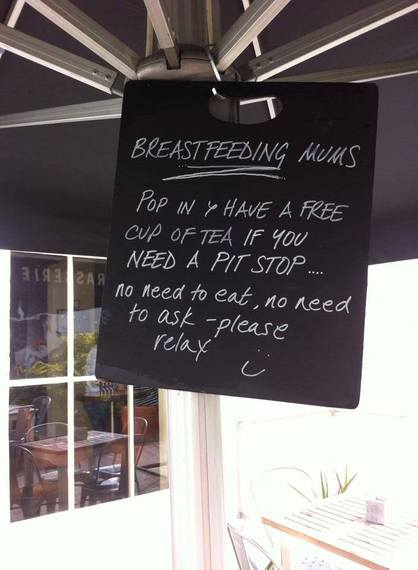 BRASSERIE
BREASTFEEDING MUMS
POP IN & HAVE A FREE
CUP OF TEA IF YOU
NEED A PIT STOP....
no need to eat, no need
to ask - please
relax